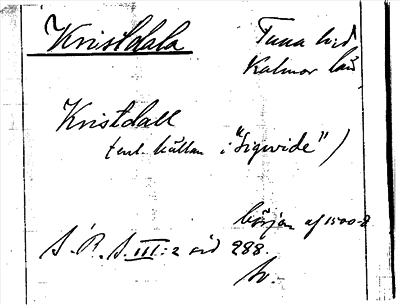 Kristdala Tuna hrd
Kalmar län
Kristdall
(enl. källan i "Sigwide")
början af 1500-t.
S. R. S. III:2 sid 288.
Sv.